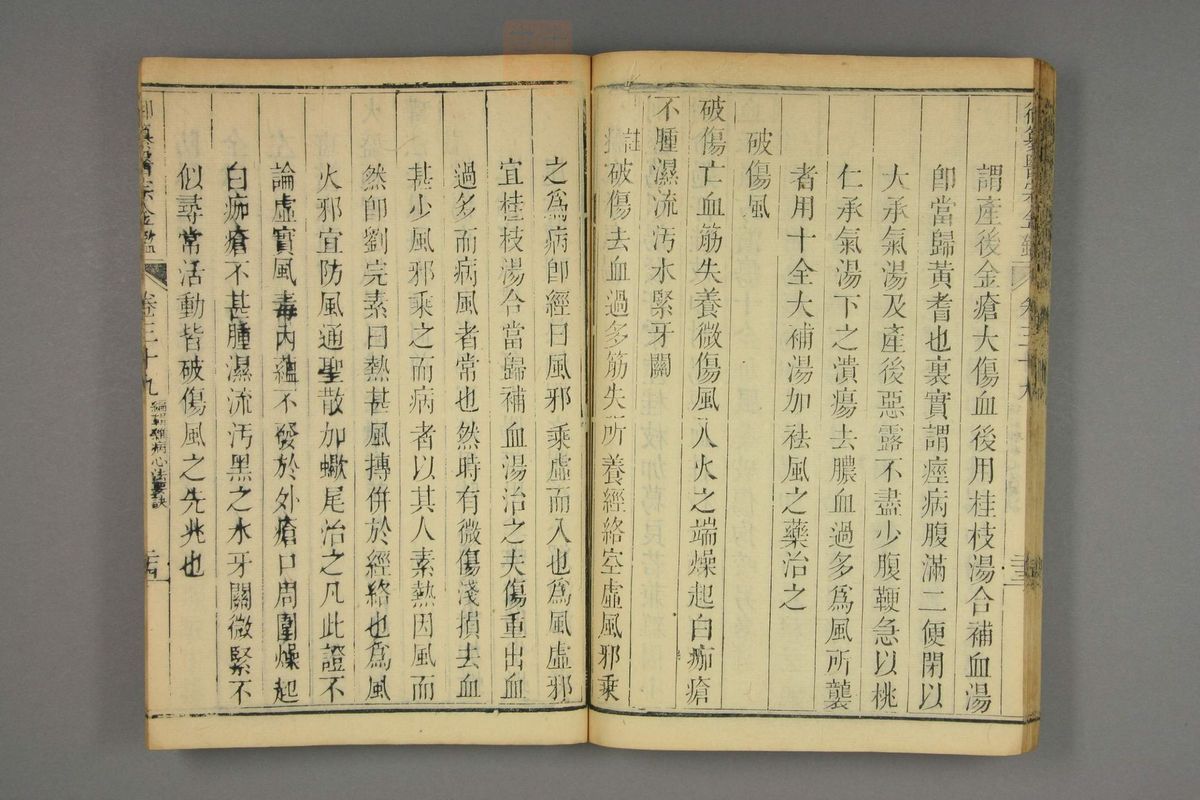 謂產後金瘡大傷血後用桂枝湯合補血湯
卽當歸黃耆也裏實謂痙病腹滿二便閉以
大承氣湯及產後惡露不盡少腹鞕急以桃
仁承氣湯下之潰瘍去膿血過多爲風所襲
者用十全大補湯加祛風之藥治之
破傷風
破傷亡血筋失養微傷風入火之端燥起白痂瘡
不腫濕流汚水緊牙關
註破傷去血過多筋失所養經絡空虛風邪乘
之爲病卽經曰風邪乘虛而入也爲風虛邪
宜桂枝湯合當歸補血湯治之夫傷重出血
過多而病風者常也然時有微傷淺損去血
甚少風邪乘之而病者以其人素熱因風而
然卽劉完素曰熱甚風摶併於經絡也爲風
火邪宜防風通聖散加蠍尾治之凡此證不
論虛實風毒內蘊不發於外瘡口周圍燥起
白痂瘡不甚腫濕流汚黑之水牙關微緊不
似尋常活動皆破傷風之先兆也
御纂醫宗金鑑
卷三十九
編輯雜病心法要訣